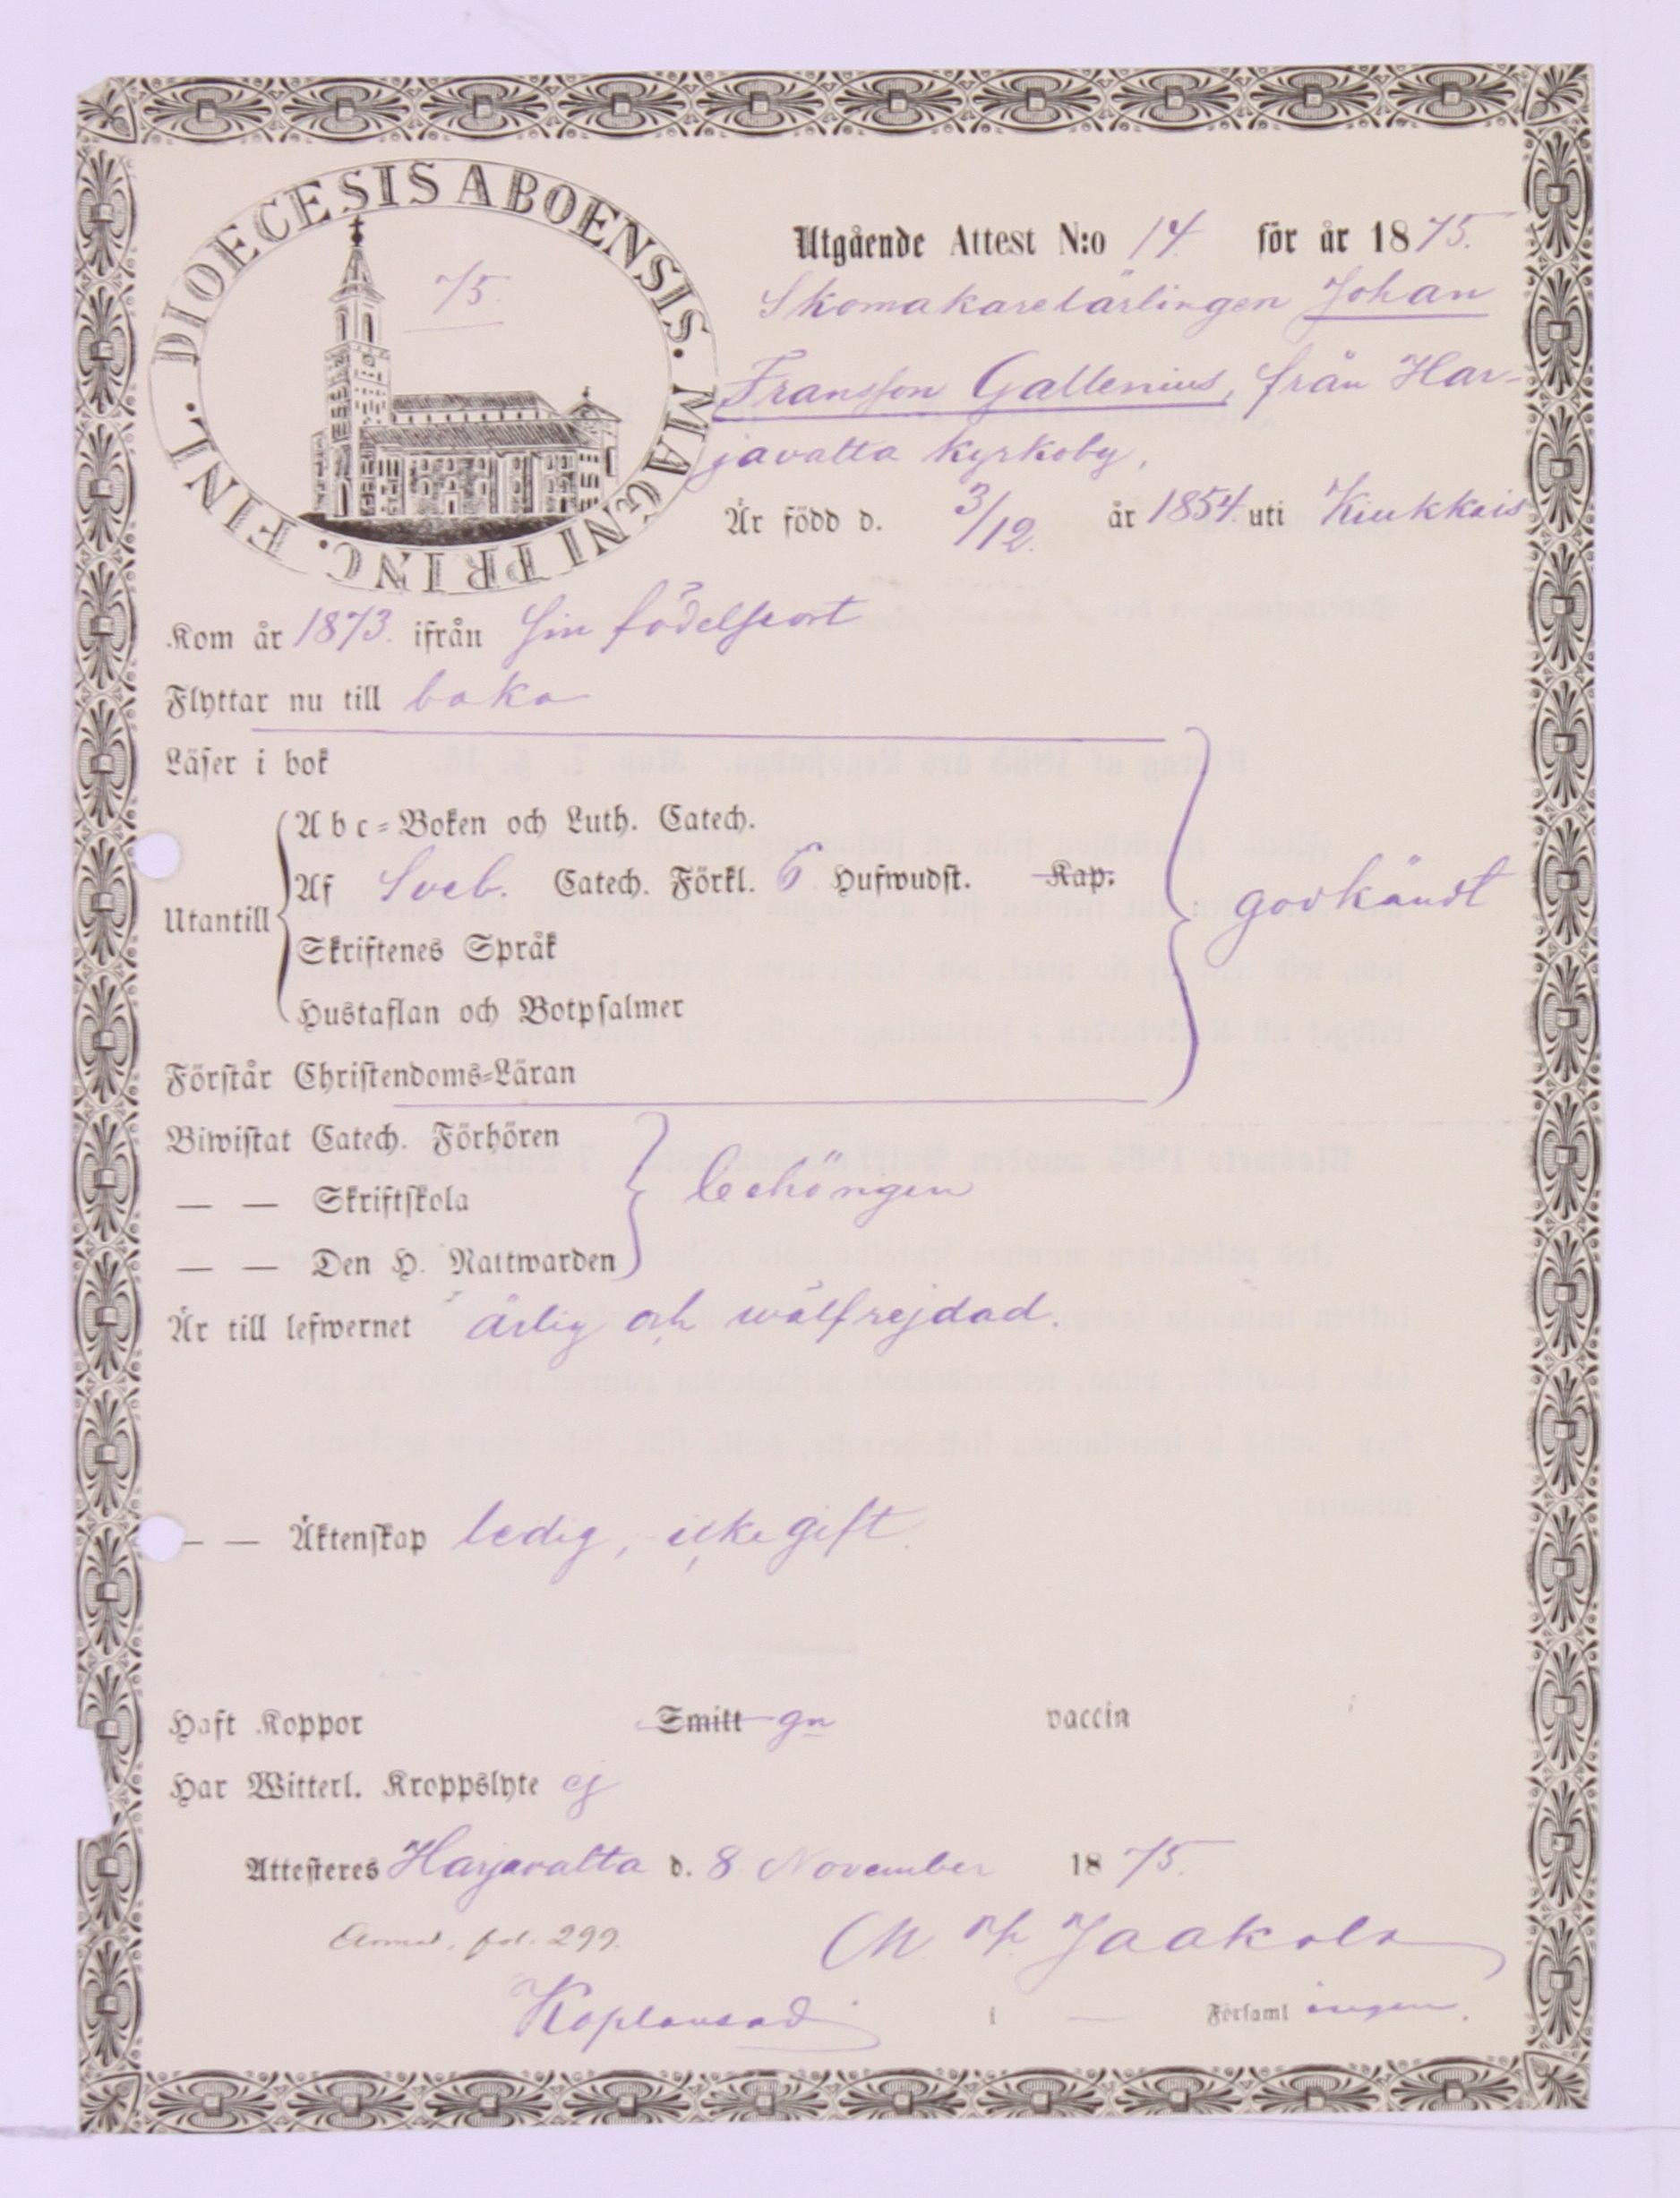 DIOECESIS ABOENSIS. MAGNI PRINC. FINL.
75.
Utgående Attest N:o 14. för år 1875.
Skomakarelärlingen Johan
Fransson Gallenius, från Har-
javalta kyrkoby,
Är född d. 3/12. år 1854. uti Kiukkais
Kom år 1873. ifrån sin födelseort
Flyttar nu till baka
Läser i bok
Utantill
Abc-Boken och Luth. Catech.
Af Sveb. Catech. Förkl. 6 Hufwudst. Kap.
Skriftenes Språk
Hustaflan och Botpsalmer
godkändt
Förstår Christendoms-Läran
Biwistat Catech. Förhören
— — Skriftskola
— — Den H. Nattwarden
behörigen
Är till lefwernet ärlig och wälfrejdad.
— — Äktenskap ledig, icke gift.
Haft Koppor Smitt gn vaccin
Har Witterl. Kroppslyte ej
Attesteres Harjavalta d. 8 November 1875.
fol. 299.
Jaakola
i — Församlingen.